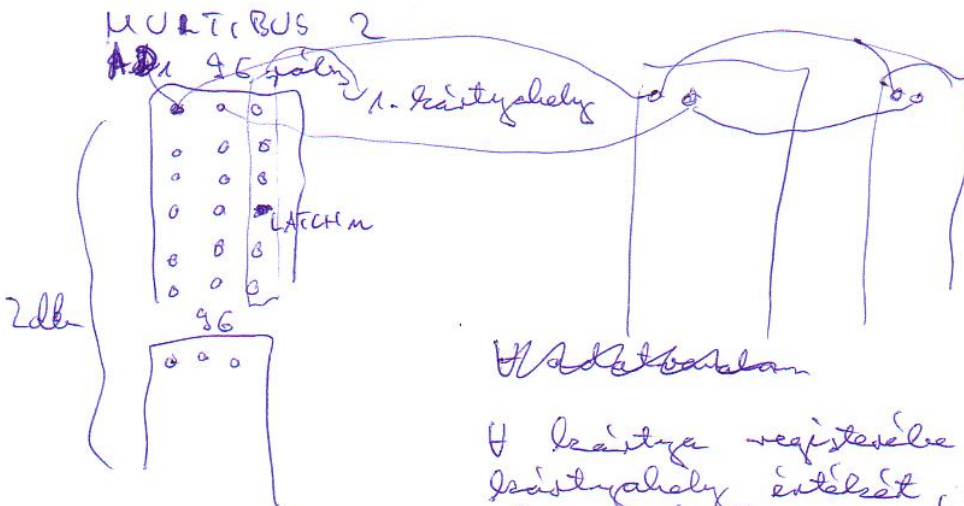 MULTIBUS 2
AD1 96 pólus
1. kártyahely
LATCHn
2db
96
∀ kártya registerébe
kártyahely értékét,